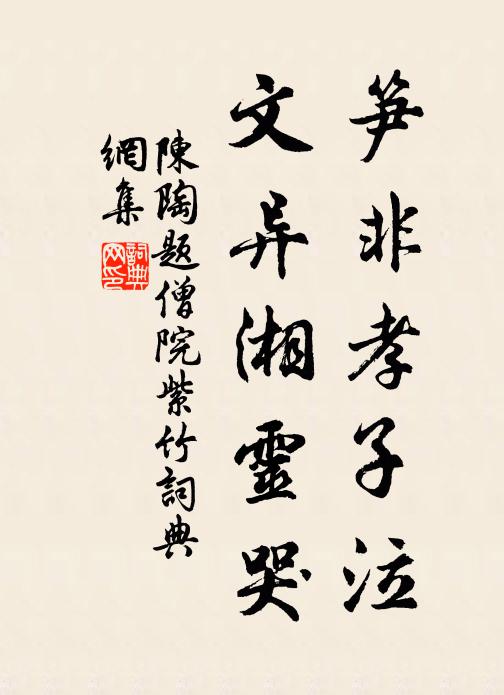 笋非孝子泣
文异湘靈哭
陳陶題僧院紫竹詞典
網集
詞典網印